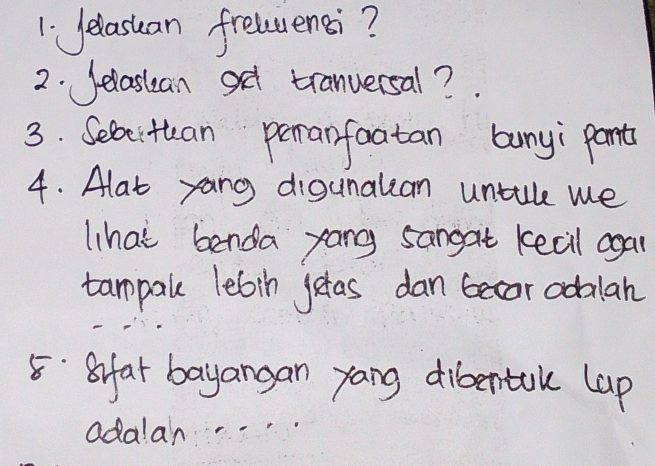 1. Jelaskan frekuensi ?
2. Jelaskan gel tranversal ? .
3. Sebutkan pemanfaatan bunyi pant
4. Alat yang digunakan untuk me
lihat benda yang sangat kecil agar
tampak lebih jelas dan besar adalah
- - . .
5. Sifat bayangan yang dibentuk lup
adalah . . . . .